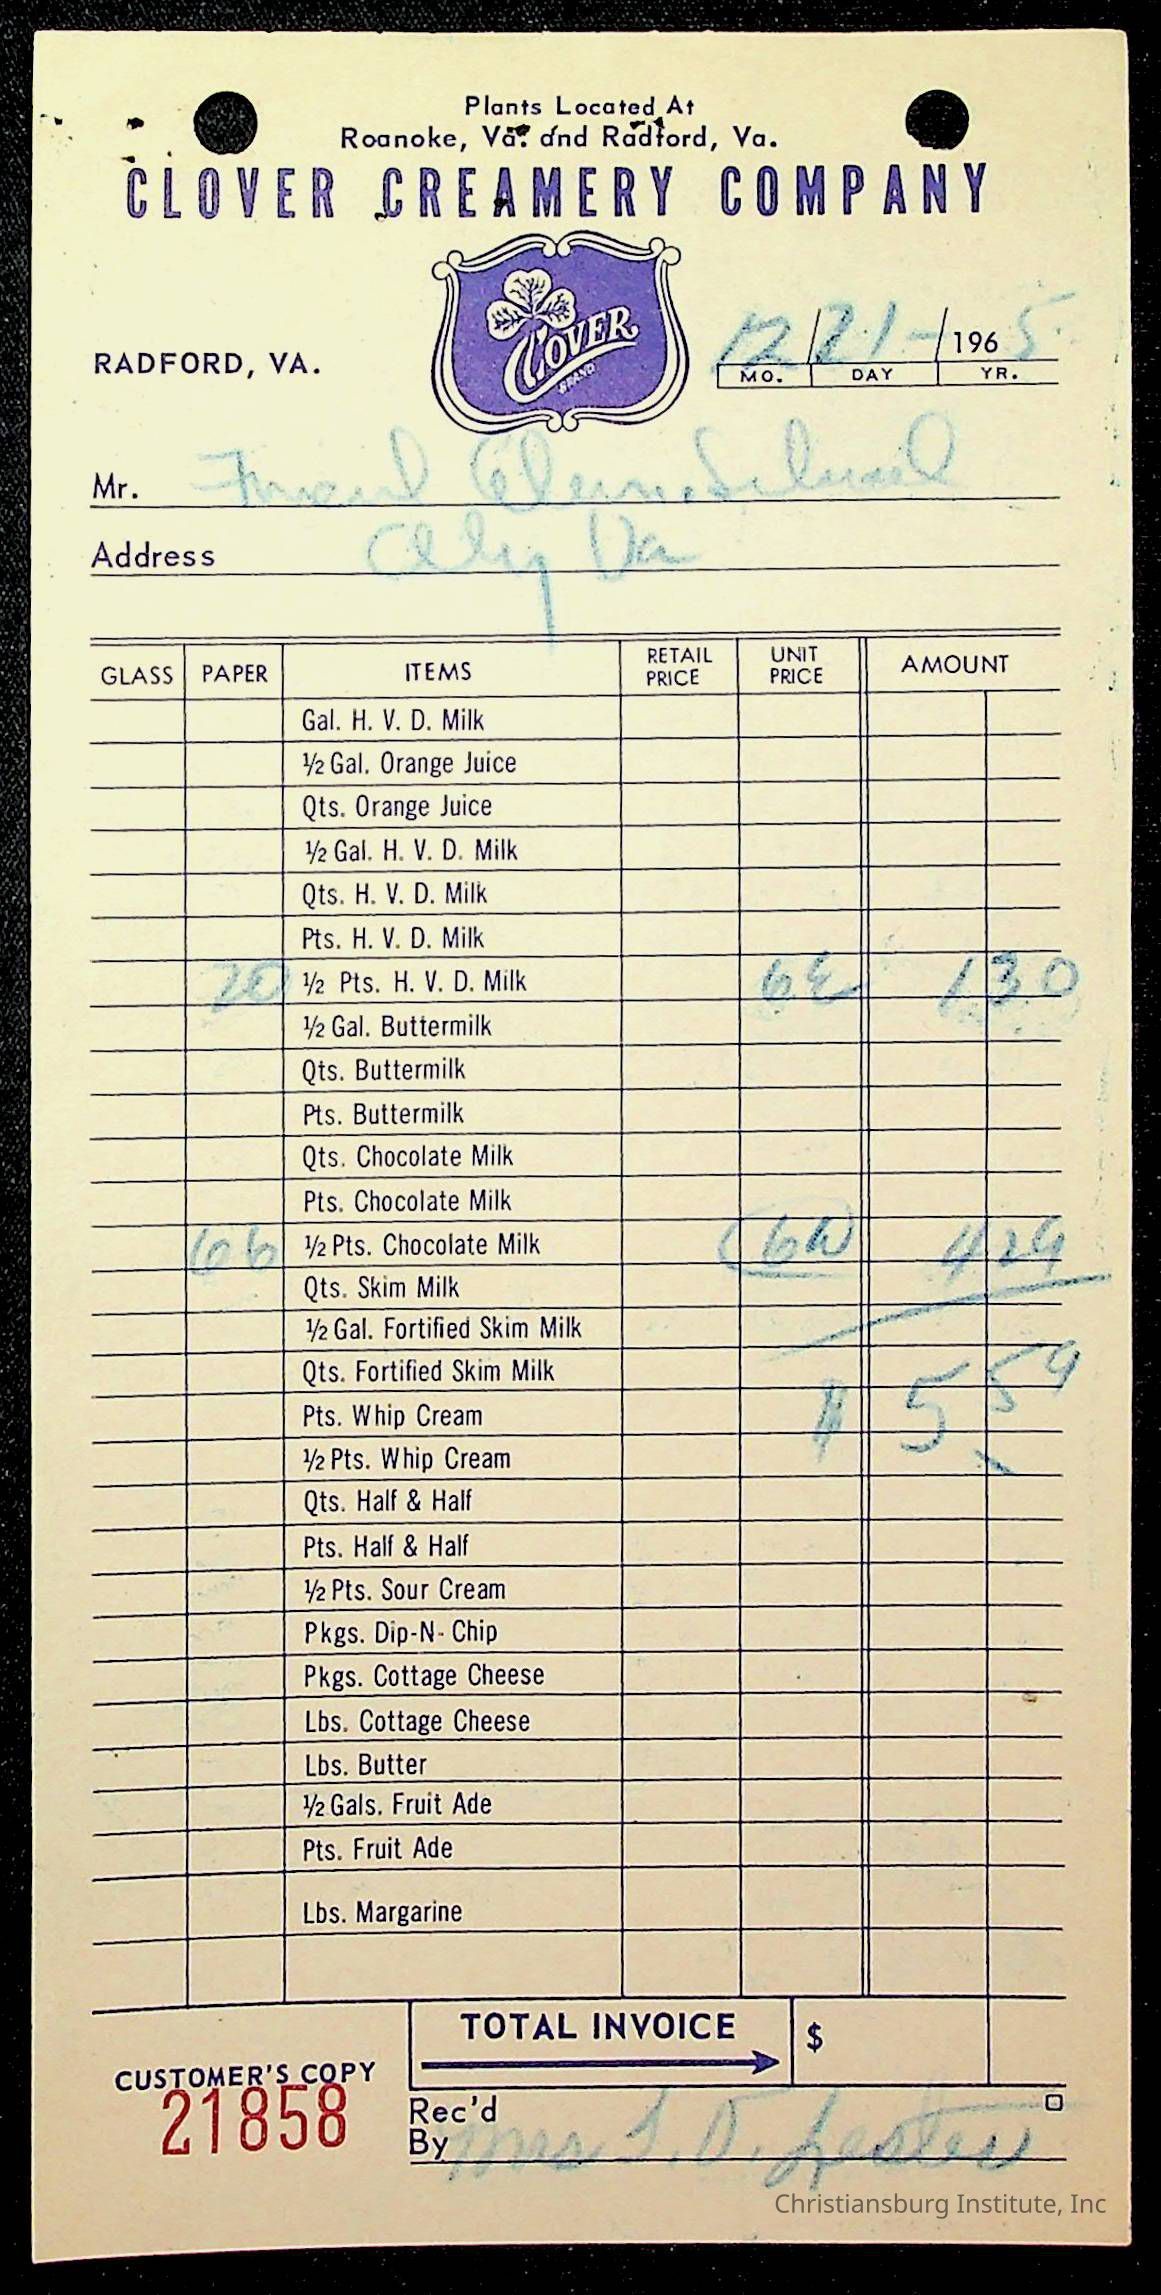 Plants Located At
Roanoke, Va. and Radford, Va.
CLOVER CREAMERY COMPANY
CLOVER
BRAND
RADFORD, VA.
12/21-/1965
MO. DAY YR.
Mr. Friend Elem. School
Address Va
GLASS PAPER ITEMS RETAIL PRICE UNIT PRICE AMOUNT
Gal. H. V. D. Milk
½ Gal. Orange Juice
Qts. Orange Juice
½ Gal. H. V. D. Milk
Qts. H. V. D. Milk
Pts. H. V. D. Milk
20 ½ Pts. H. V. D. Milk 1 30
½ Gal. Buttermilk
Qts. Buttermilk
Pts. Buttermilk
Qts. Chocolate Milk
Pts. Chocolate Milk
66 ½ Pts. Chocolate Milk 4 29
Qts. Skim Milk
½ Gal. Fortified Skim Milk
Qts. Fortified Skim Milk
$ 5 59
Pts. Whip Cream
½ Pts. Whip Cream
Qts. Half & Half
Pts. Half & Half
½ Pts. Sour Cream
Pkgs. Dip-N-Chip
Pkgs. Cottage Cheese
Lbs. Cottage Cheese
Lbs. Butter
½ Gals. Fruit Ade
Pts. Fruit Ade
Lbs. Margarine
TOTAL INVOICE $
CUSTOMER'S COPY
21858
Rec'd
By Mrs. Lester
Christiansburg Institute, Inc